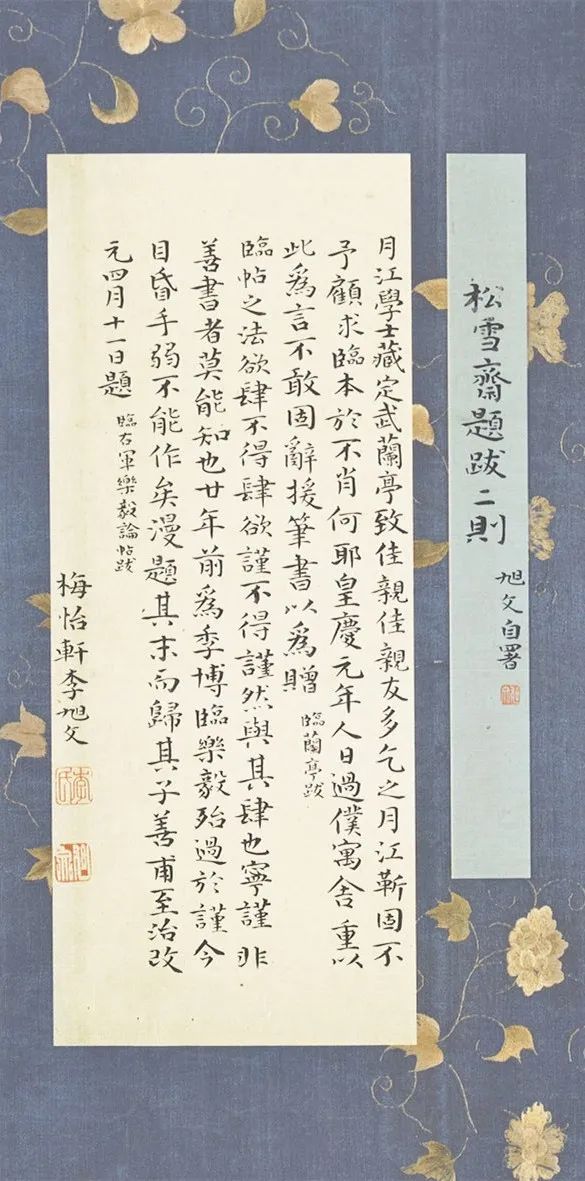 松雪齋題跋二則
旭文自署
月江學士藏定武蘭亭致佳親佳親友多乞之月江靳固不
予顧求臨本於不肖何耶皇慶元年人日過僕寓舍重以
此爲言不敢固辭援筆書以爲贈 臨蘭亭跋
臨帖之法欲肆不得肆欲謹不得謹然與其肆也寧謹非
善書者莫能知也廿年前爲季博臨樂毅殆過於謹今
目昏手弱不能作矣漫題其末而歸其子善甫至治改
元四月十一日題 臨右軍樂毅論帖跋
梅怡軒李旭文
李氏